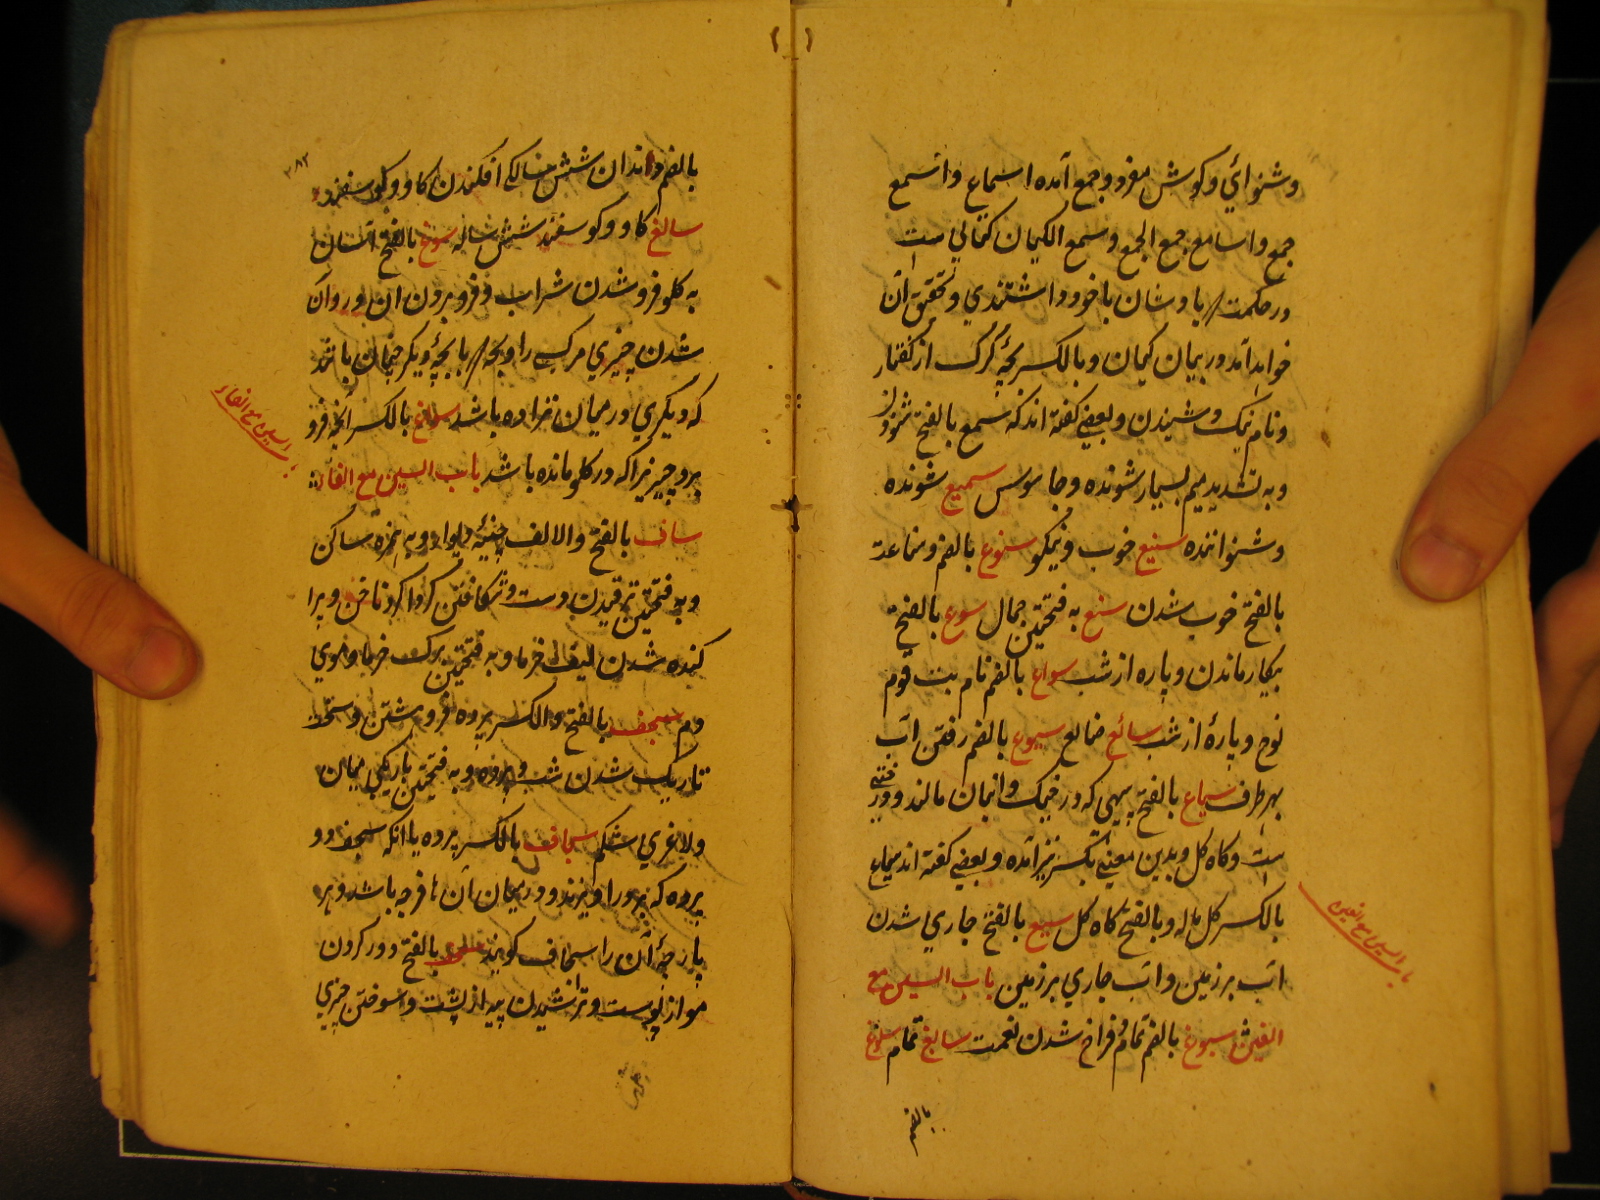 وشنوائي وكوش مفرد وجمع آمده اسماع واسمع
جمع واسامع جمع الجمع وسمع الكيان كتابي ست
در حكمت بادشان باخود داشتندي وتحقيق آن
خواهد آمد در بيان كيان وبالكسر بچهٔ كرك از كفتار
ونام نيك وشنيدن وبعضي كفته اندكه سمع بالفتح شنودن
وبه تشديد ميم بسيار شنونده وجاسوس سميع شنونده
وشنواننده سنيع خوب ونيكو سنوع بالضم وسناعت
بالفتح خوب شدن سنع به فتحتين جمال سوع بالفتح
بيكار ماندن وپاره از شب سواع بالضم نام بت قوم
نوح وپارهٔ از شب سائع ضائع سيوع بالضم رفتن آب
بهر طرف سياع بالفتح پيهي كه در خيك وانبان مالند ودرختي
ست وكاه كل وبدين معني بكسر نيز آمده وبعضي كفته اند سياع
بالكسر كل ماله وبالفتح كاه كل سيع بالفتح جاري شدن
آب برزمين وآب جاري برزمين باب السين مع
الغين سبوغ بالضم تمام وفراخ شدن نعمت سابغ تمام سلوغ
باب السين مع الغين
بالضم
٢٨٢
بالضم دندان شش سالكي افكندن كاو وكوسفند
سالغ كاو وكوسفند شش ساله سوغ بالفتح آسان
به كلو فرو شدن شراب وفرو بردن آن وروان
شدن چيزي مركسي را وبچه با بچهٔ ديكر چنان باشد
كه ديكري درميان نزاده باشد سواغ بالكسر آنچه فرو
برد چيزيراكه در كلو مانده باشد باب السين مع الفاء
ساف بالفتح والالف چينهٔ ديوار وبه همزه ساكن
وبه فتحتين ترقيدن دست وشكافتن كرداكرد ناخن وپرا
كنده شدن ليف خرما وبه فتحتين برك خرما وموي
دم سجف بالفتح والكسر پرده فروهشتن وسخت
تاريك شدن شب وپرده وبه فتحتين باريكي ميان
ولاغري شكم سجاف بالكسر پرده يا آنكه سجف دو
پرده كه بر در آويزند ودرميان آن ها فرجه باشد وهر
پارچهٔ آن را سجاف كويند سحف بالفتح دور كردن
مو از پوست وتراشيدن پيه از پشت وسوختن چيزي
باب السين مع الفاء